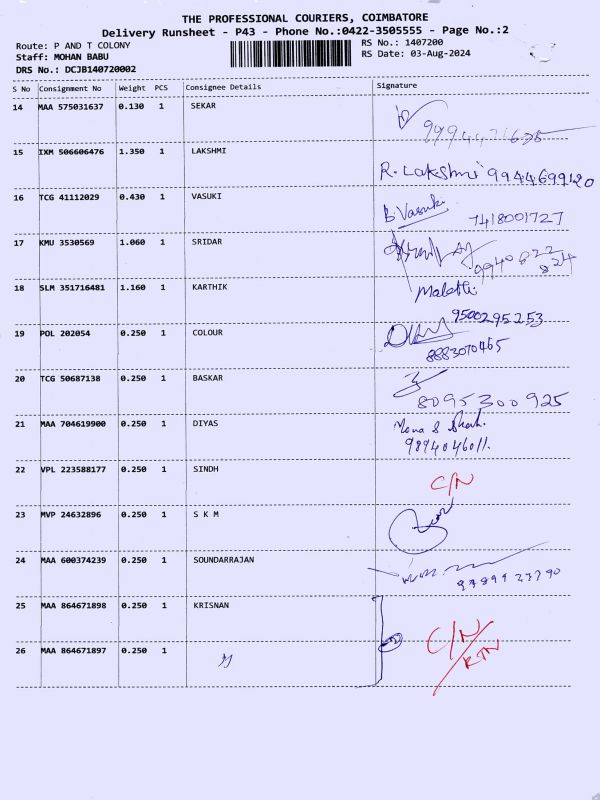 THE PROFESSIONAL COURIERS, COIMBATORE
Delivery Runsheet - P43 - Phone No.:0422-3505555 - Page No.:2
Route: P AND T COLONY
RS No.: 1407200
Staff: MOHAN BABU
RS Date: 03-Aug-2024
DRS No.: DCJB140720002
S No Consignment No Weight PCS Consignee Details Signature
14 MAA 575031637 0.130 1 SEKAR
15 IXM 506606476 1.350 1 LAKSHMI
R. Lakshmi 9944699120
16 TCG 41112029 0.430 1 VASUKI
B. Vasuki 7418001727
17 KMU 3530569 1.060 1 SRIDAR
9940622
824
18 SLM 351716481 1.160 1 KARTHIK
Malathi
9500295253
19 POL 202054 0.250 1 COLOUR
8883070465
20 TCG 50687138 0.250 1 BASKAR
8095300925
21 MAA 704619900 0.250 1 DIYAS
9894046011.
22 VPL 223588177 0.250 1 SINDH
C/N
23 MVP 24632896 0.250 1 S K M
24 MAA 600374239 0.250 1 SOUNDARRAJAN
25 MAA 864671898 0.250 1 KRISNAN
C/N
RTN
26 MAA 864671897 0.250 1